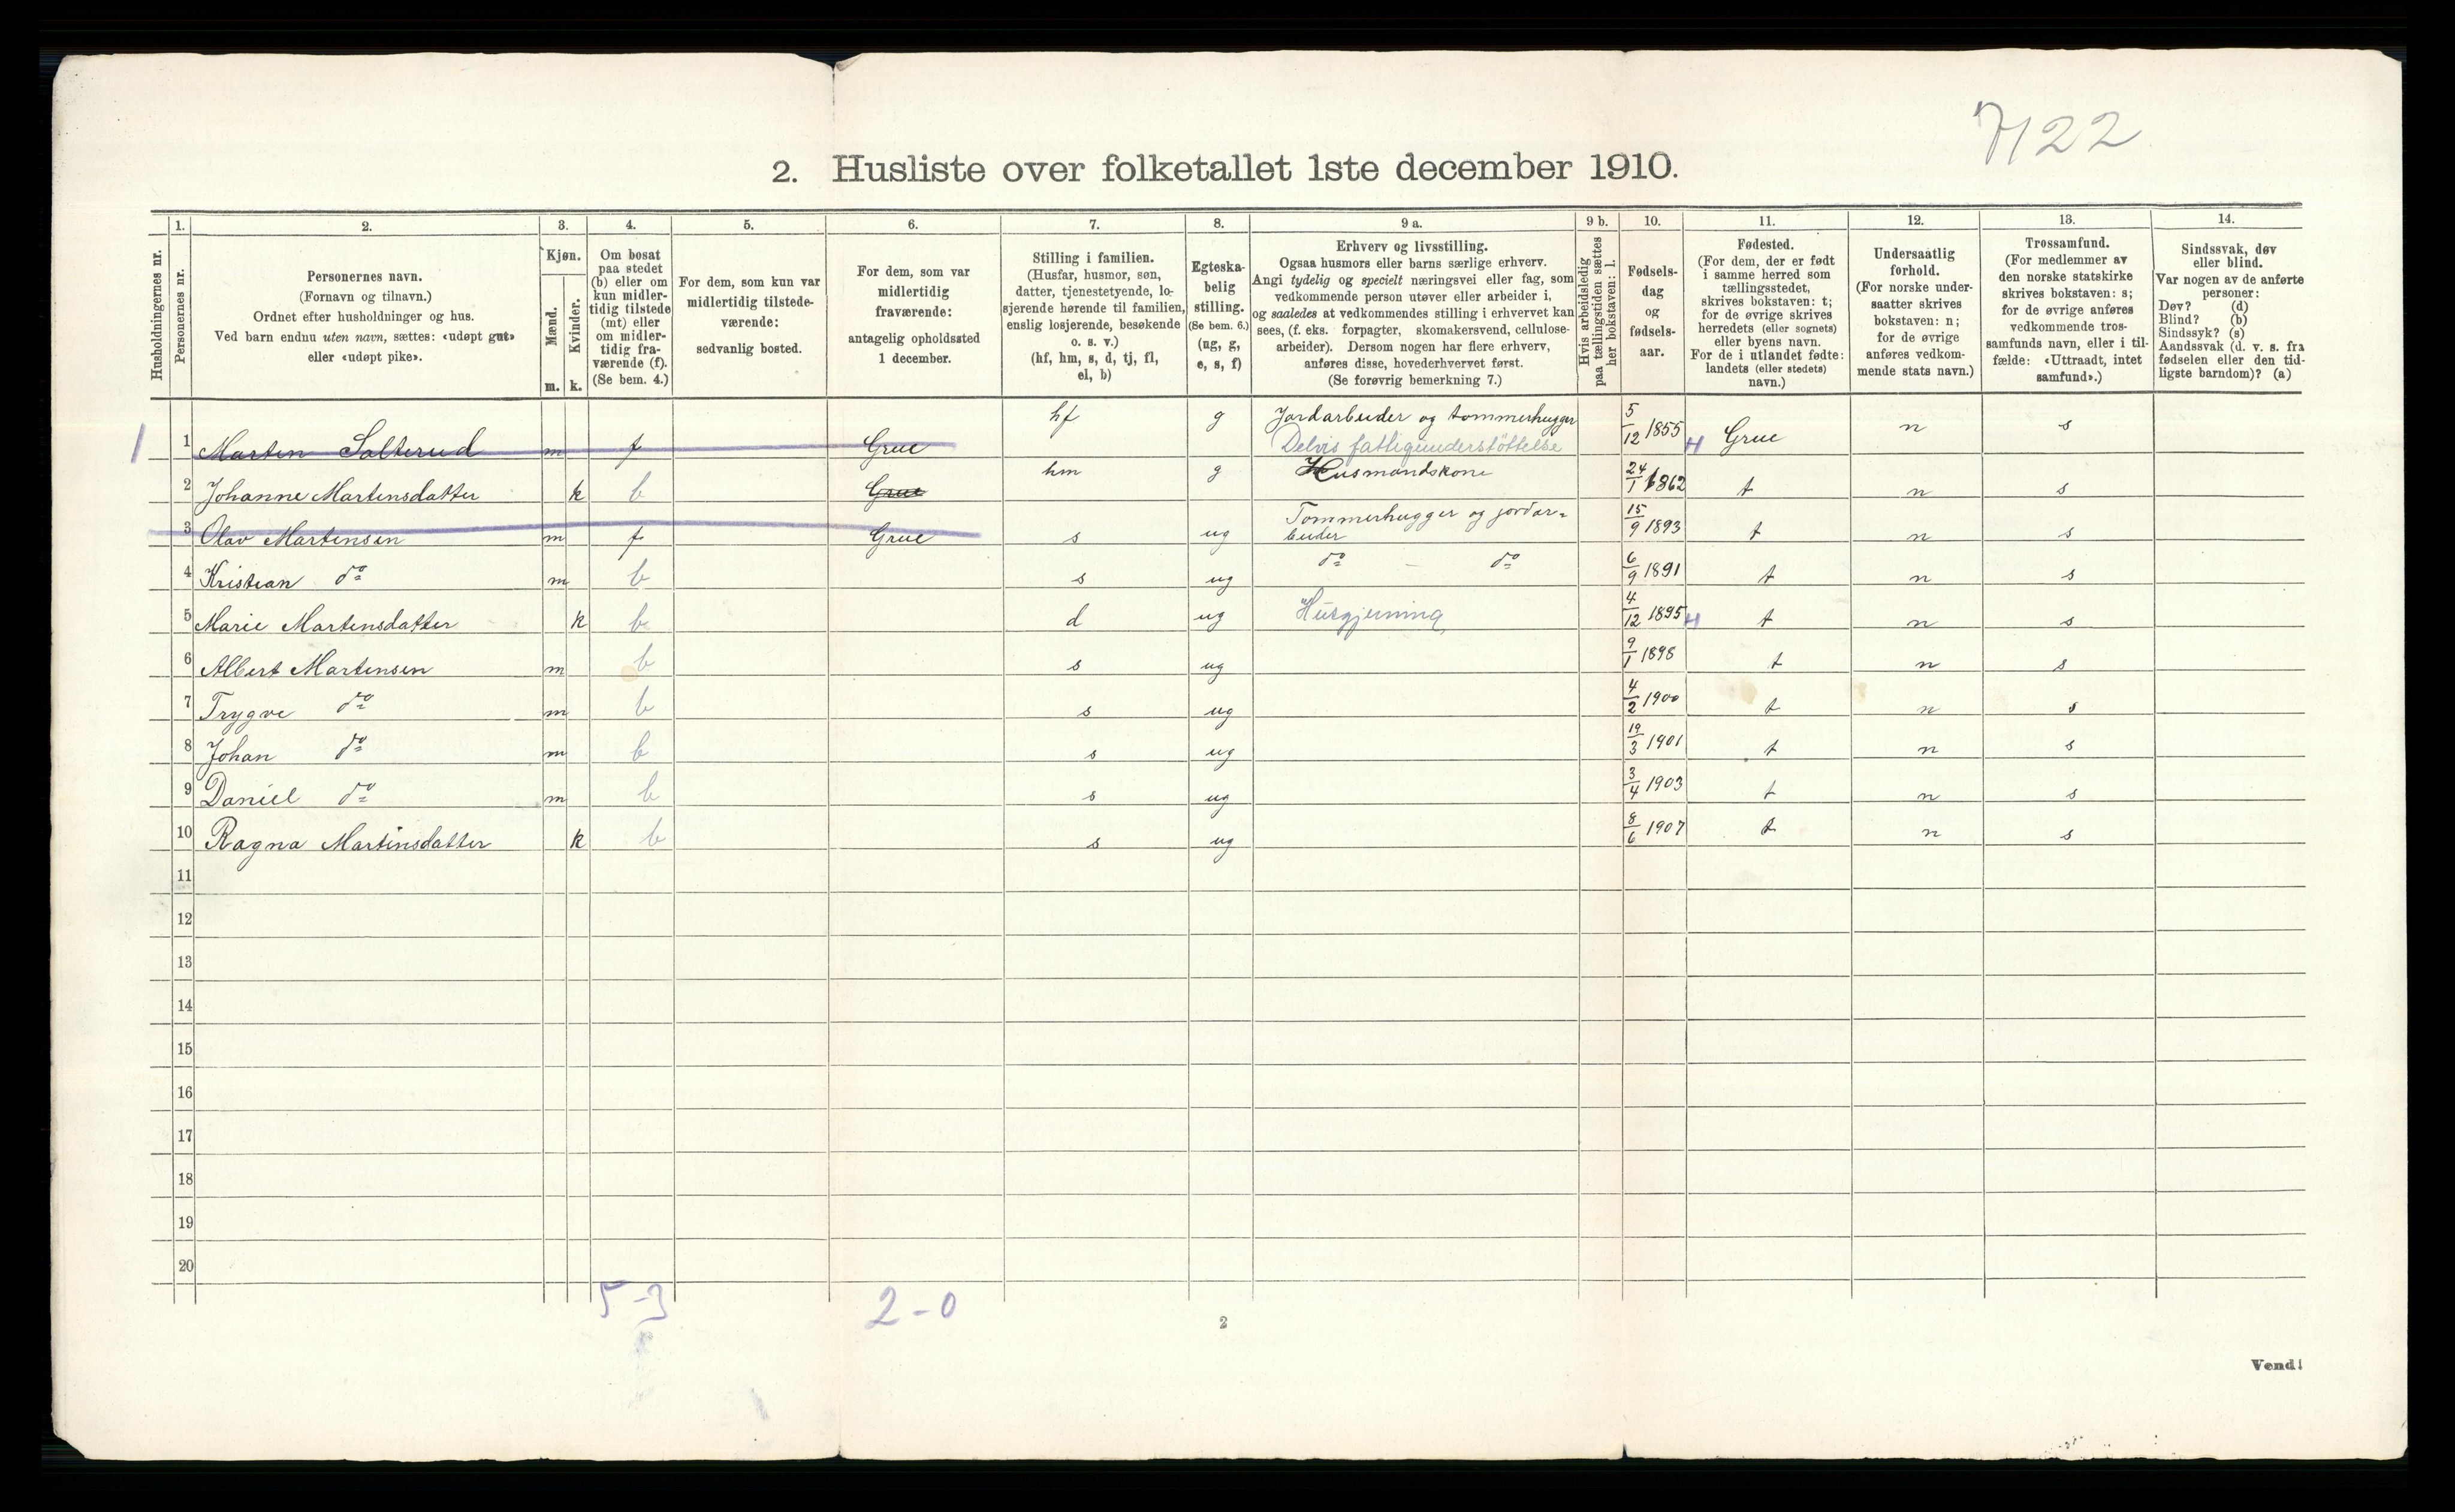 7122
2. Husliste over folketallet 1ste december 1910.
1. 2. 3. 4. 5. 6. 7. 8. 9 a. 9 b. 10. 11. 12. 13. 14.
Husholdningernes nr.
Personernes nr.
Personernes navn.
(Fornavn og tilnavn.)
Ordnet efter husholdninger og hus.
Ved barn endnu uten navn, sættes: «udøpt gut»
eller «udøpt pike».
Kjøn.
Mænd.
m.
Kvinder.
k.
Om bosat
paa stedet
(b) eller om
kun midler-
tidig tilstede
(mt) eller
om midler-
tidig fra-
værende (f).
(Se bem. 4.)
For dem, som kun var
midlertidig tilstede-
værende:
sedvanlig bosted.
For dem, som var
midlertidig
fraværende:
antagelig opholdssted
1 december.
Stilling i familien.
(Husfar, husmor, søn,
datter, tjenestetyende, lo-
sjerende hørende til familien,
enslig losjerende, besøkende
o. s. v.)
(hf, hm, s, d, tj, fl,
el, b)
Egteska-
belig
stilling.
(Se bem. 6.)
(ug, g,
e, s, f)
Erhverv og livsstilling.
Ogsaa husmors eller barns særlige erhverv.
Angi tydelig og specielt næringsvei eller fag, som
vedkommende person utøver eller arbeider i,
og saaledes at vedkommendes stilling i erhvervet kan
sees, (f. eks. forpagter, skomakersvend, cellulose-
arbeider). Dersom nogen har flere erhverv,
anføres disse, hovederhvervet først.
(Se forøvrig bemerkning 7.)
Hvis arbeidsledig
paa tællingstiden sættes
her bokstaven: l.
Fødsels-
dag
og
fødsels-
aar.
Fødested.
(For dem, der er født
i samme herred som
tællingsstedet,
skrives bokstaven: t;
for de øvrige skrives
herredets (eller sognets)
eller byens navn.
For de i utlandet fødte:
landets (eller stedets)
navn.)
Undersaatlig
forhold.
(For norske under-
saatter skrives
bokstaven: n;
for de øvrige
anføres vedkom-
mende stats navn.)
Trossamfund.
(For medlemmer av
den norske statskirke
skrives bokstaven: s;
for de øvrige anføres
vedkommende tros-
samfunds navn, eller i til-
fælde: «Uttraadt, intet
samfund».)
Sindssvak, døv
eller blind.
Var nogen av de anførte
personer:
Døv? (d)
Blind? (b)
Sindssyk? (s)
Aandssvak (d. v. s. fra
fødselen eller den tid-
ligste barndom)? (a)
1 1 Marten Salterud m f Grue hf g Jordarbeider og tømmerhugger 5/12 1855 Grue n s
Delvis fattigunderstøttelse
2 Johanne Martensdatter k b Grue hm g Husmandskone 24/1 1862 t n s
3 Olav Martensen m f Grue s ug Tømmerhugger og jordar=
beider 15/9 1893 t n s
4 Kristian do m b s ug do - do 6/9 1891 t n s
5 Marie Martensdatter k b d ug Husgjerning 4/12 1895 t n s
6 Albert Martensen m b s ug 9/1 1898 t n s
7 Trygve do m b s ug 4/2 1900 t n s
8 Johan do m b s ug 19/3 1901 t n s
9 Daniel do m b s ug 3/4 1903 t n s
10 Ragna Martinsdatter k b s ug 8/6 1907 t n s
11
12
13
14
15
16
17
18
19
20
5-3 2-0
2
Vend!